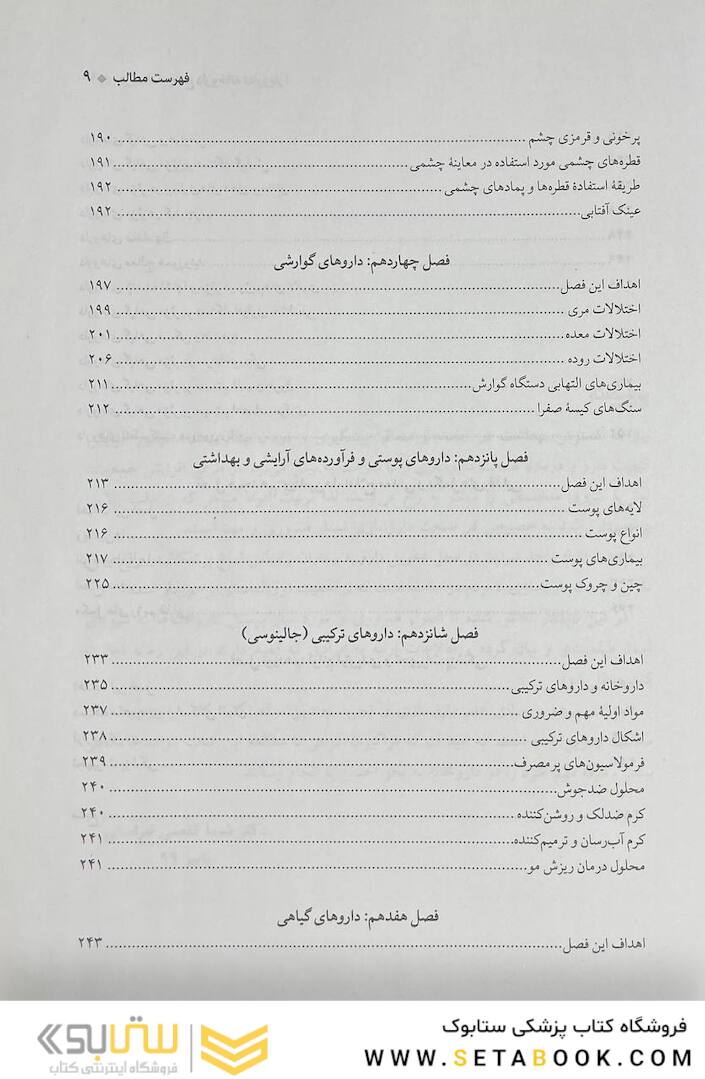 فهرست مطالب ❖ ۹
پرخونی و قرمزی چشم ... ۱۹۰
قطره‌های چشمی مورد استفاده در معاینهٔ چشمی ... ۱۹۱
طریقهٔ استفادهٔ قطره‌ها و پمادهای چشمی ... ۱۹۲
عینک آفتابی ... ۱۹۲
فصل چهاردهم: داروهای گوارشی
اهداف این فصل ... ۱۹۷
اختلالات مری ... ۱۹۹
اختلالات معده ... ۲۰۱
اختلالات روده ... ۲۰۶
بیماری‌های التهابی دستگاه گوارش ... ۲۱۱
سنگ‌های کیسهٔ صفرا ... ۲۱۲
فصل پانزدهم: داروهای پوستی و فرآورده‌های آرایشی و بهداشتی
اهداف این فصل ... ۲۱۳
لایه‌های پوست ... ۲۱۶
انواع پوست ... ۲۱۶
بیماری‌های پوست ... ۲۱۷
چین و چروک پوست ... ۲۲۵
فصل شانزدهم: داروهای ترکیبی (جالینوسی)
اهداف این فصل ... ۲۳۳
داروخانه و داروهای ترکیبی ... ۲۳۵
مواد اولیهٔ مهم و ضروری ... ۲۳۷
اشکال داروهای ترکیبی ... ۲۳۸
فرمولاسیون‌های پرمصرف ... ۲۳۹
محلول ضدجوش ... ۲۴۰
کرم ضدلک و روشن‌کننده ... ۲۴۰
کرم آب‌رسان و ترمیم‌کننده ... ۲۴۱
محلول درمان ریزش مو ... ۲۴۱
فصل هفدهم: داروهای گیاهی
اهداف این فصل ... ۲۴۳
فروشگاه کتاب پزشکی ستابوک
WWW.SETABOOK.COM
ستابوک
فروشگاه اینترنتی کتاب